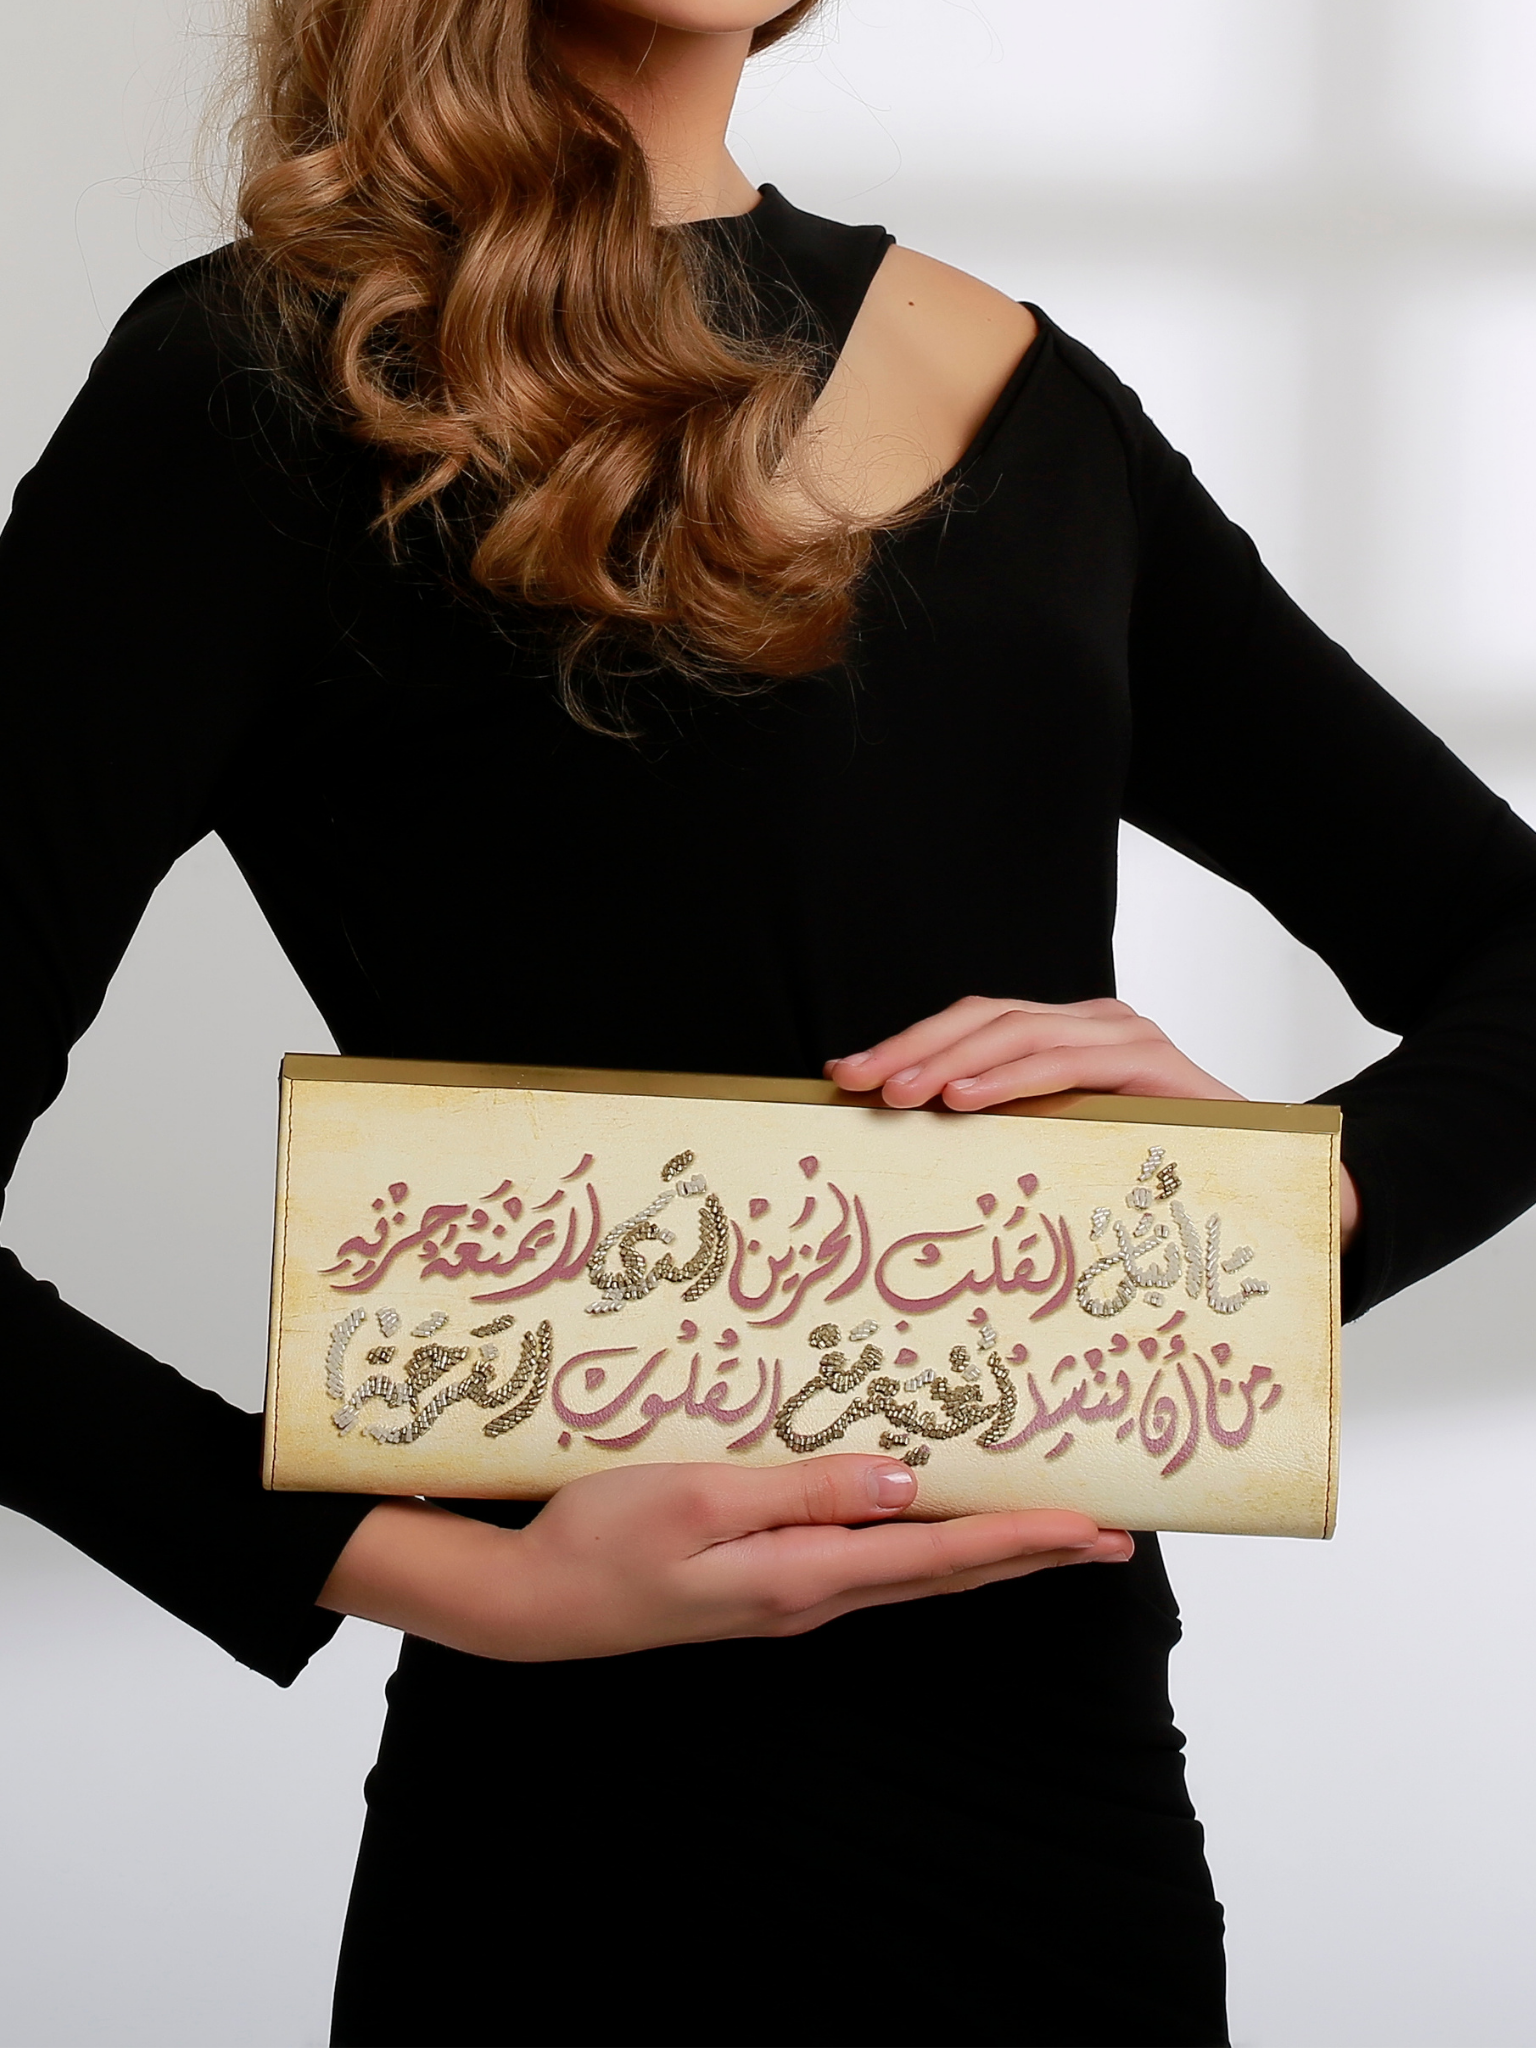 ما أنبل القلب الحزين الذي لا يمنعه حزنه
من أن ينشد أغنية مع القلوب الفرحة